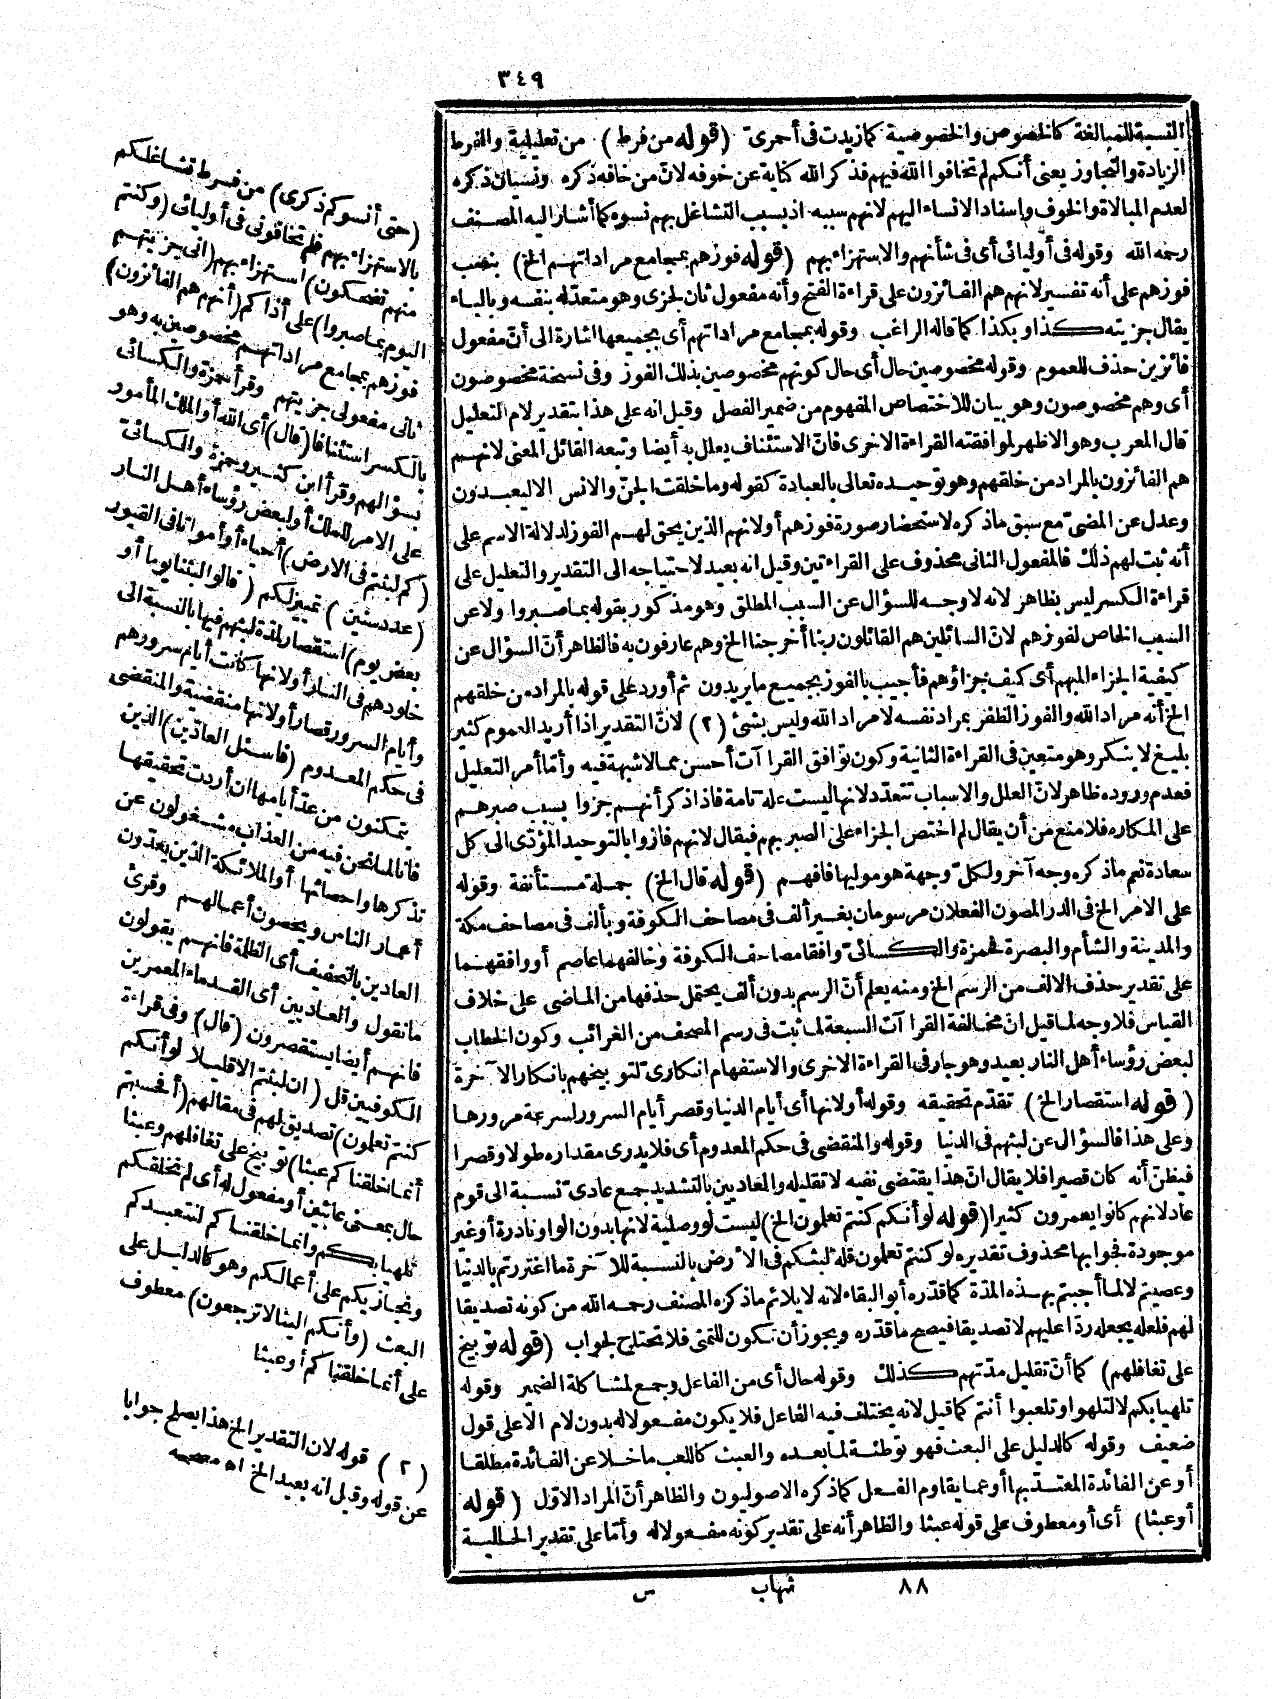 ٣٤٩
النسبة للمبالغة كالخصوص والخصوصية كما زيدت فى أحمرىّ (قوله من فرط) من تعليلية والفرط
الزيادة والتجاوز يعنى أنكم لم تخافوا الله فيهم فذكر الله كناية عن خوفه لانّ من خافه ذكره ونسيان ذكره
لعدم المبالاة والخوف واسناد الانساء اليهم لانهم سببه اذ بسبب التشاغل بهم نسوه كما أشار اليه المصنف
رحمه الله وقوله فى أوليائى أى فى شأنهم والاستهزاء بهم (قوله فوزهم بمجامع مراداتهم الخ) بنصب
فوزهم على أنه تفسير لانهم هم الفائزون على قراءة الفتح وأنه مفعول ثان لجزى وهو متعدّ له بنفسه وبالباء
يقال جزيته كذا وبكذا كما قاله الراغب وقوله بمجامع مراداتهم أى بجميعها اشارة الى أنّ مفعول
فائزين حذف للعموم وقوله مخصوصين حال أى حال كونهم مخصوصين بذلك الفوز وفى نسخة مخصوصون
أى وهم مخصوصون وهو بيان للاختصاص المفهوم من ضمير الفصل وقيل انه على هذا بتقدير لام التعليل
قال المعرب وهو الاظهر لموافقته القراءة الاخرى فانّ الاستئناف يعلل به أيضا وتبعه القائل المعنى لانهم
هم الفائزون بالمراد من خلقهم وهو توحيده تعالى بالعبادة كقوله وما خلقت الجنّ والانس الا ليعبدون
وعدل عن المضىّ مع سبق ما ذكره لاستحضار صورة فوزهم أو لانهم الذين يحق لهم الفوز لدلالة الاسم على
أنه ثبت لهم ذلك فالمفعول الثانى محذوف على القراءتين وقيل انه بعيد لاحتياجه الى التقدير والتعليل على
قراءة الكسر ليس بظاهر لانه لا وجه للسؤال عن السبب المطلق وهو مذكور بقوله بما صبروا ولا عن
السبب الخاص لفوزهم لانّ السائلين هم القائلون ربنا أخرجنا الخ وهم عارفون به فالظاهر أنّ السؤال عن
كيفية الجزاء المبهم أى كيف جزاؤهم فأجيب بالفوز بجميع ما يريدون ثم أورد على قوله بالمراد من خلقهم
الخ أنه مراد الله والفوز الظفر بمراد نفسه لا مراد الله وليس بشئ (٢) لانّ التقدير اذا أريد العموم كثير
بليغ لا ينكر وهو متعين فى القراءة الثانية وكون توافق القراآت أحسن مما لا شبهة فيه وأمّا أمر التعليل
فعدم وروده ظاهر لانّ العلل والاسباب تتعدّد لانها ليست علة تامة فاذا ذكر أنهم جزوا بسبب صبرهم
على المكاره فلا منع من أن يقال لم اختص الجزاء على الصبر بهم فيقال لانهم فازوا بالتوحيد المؤدّى الى كل
سعادة نعم ما ذكره وجه آخر ولكلّ وجهة هو موليها فافهم (قوله قال الخ) جملة مستأنفة وقوله
على الامر الخ فى الدر المصون الفعلان مرسومان بغير ألف فى مصاحف الكوفة وبألف فى مصاحف مكة
والمدينة والشأم والبصرة فحمزة والكسائىّ وافقا مصاحف الكوفة وخالفهما عاصم أو وافقهما
على تقدير حذف الالف من الرسم الخ ومنه يعلم أنّ الرسم بدون ألف يحتمل حذفها من الماضى على خلاف
القياس فلا وجه لما قيل انّ مخالفة القراآت السبعة لما ثبت فى رسم المصحف من الغرائب وكون الخطاب
لبعض رؤساء أهل النار بعيد وهو جار فى القراءة الاخرى والاستفهام انكارى لتوبيخهم بانكار الآخرة
(قوله استقصار الخ) تقدّم تحقيقه وقوله أو لانها أى أيام الدنيا وقصر أيام السرور لسرعة مرورها
وعلى هذا فالسؤال عن لبثهم فى الدنيا وقوله والمنقضى فى حكم المعدوم أى فلا يدرى مقداره طولا وقصرا
فيظنّ أنه كان قصيرا فلا يقال انّ هذا يقتضى نفيه لا تقليله والعاديين بالتشديد جمع عادىّ نسبة الى قوم
عاد لانهم كانوا يعمرون كثيرا (قوله لو أنكم كنتم تعلمون الخ) ليست لو وصلية لانها بدون الواو نادرة أو غير
موجودة فجوابها محذوف تقديره لو كنتم تعلمون قلة لبثكم فى الارض بالنسبة للآخرة ما اغتررتم بالدنيا
وعصيتم لا لما أجبتم بهذه المدّة كما قدّره أبو البقاء لانه لا يلائم ما ذكره المصنف رحمه الله من كونه تصديقا
لهم فلعله يجعله ردّا عليهم لا تصديقا فيصح ما قدّره ويجوز أن تكون للتمنى فلا تحتاج لجواب (قوله توبيخ
على تغافلهم) كما أنّ تقليل مدّتهم كذلك وقوله حال أى من الفاعل وجمع لمشاكلة الضمير وقوله
تلهيا بكم لا لتلهوا وتلعبوا أنتم كما قيل لانه يختلف فيه الفاعل فلا يكون مفعولا له بدون لام الّا على قول
ضعيف وقوله كالدليل على البعث فهو توطئة لما بعده والعبث كاللعب ما خلا عن الفائدة مطلقا
أو عن الفائدة المعتدّ بها أو عما يقاوم الفعل كما ذكره الاصوليون والظاهر أنّ المراد الاوّل (قوله
أو عبثا) أى أو معطوف على قوله عبثا والظاهر أنه على تقدير كونه مفعولا له وأمّا على تقدير الحالية
٨٨ شهاب س
(حتى أنسوكم ذكرى) من فرط تشاغلكم
بالاستهزاء بهم فلم تخافونى فى أوليائى (وكنتم
منهم تضحكون) استهزاء بهم (انى جزيتهم
اليوم بما صبروا) على أذاكم (أنهم هم الفائزون)
فوزهم بمجامع مراداتهم مخصوصين به وهو
ثانى مفعولى جزيتهم وقرأ حمزة والكسائى
بالكسر استئنافا (قال) أى الله أو الملك المأمور
بسؤالهم وقرأ ابن كثير وحمزة والكسائىّ
على الامر للملك أو لبعض رؤساء أهل النار
(كم لبثتم فى الارض) أحياء أو أمواتا فى القبور
(عدد سنين) تمييز لكم (قالوا لبثنا يوما أو
بعض يوم) استقصارا لمدّة لبثهم فيها بالنسبة الى
خلودهم فى النار أو لانها كانت أيام سرورهم
وأيام السرور قصار أو لانها منقضية والمنقضى
فى حكم المعدوم (فاسئل العادّين) الذين
يتمكنون من عدّ أيامها ان أردت تحقيقها
فانا لما نحن فيه من العذاب مشغولون عن
تذكرها واحصائها أو الملائكة الذين يعدّون
أعمار الناس ويحصون أعمالهم وقرئ
العادين بالتخفيف أى الظلمة فانهم يقولون
ما نقول والعاديين أى القدماء المعمرين
فانهم أيضا يستقصرون (قال) وفى قراءة
الكوفيين قل (ان لبثتم الا قليلا لو أنكم
كنتم تعلمون) تصديق لهم فى مقالهم (أفحسبتم
أنما خلقناكم عبثا) توبيخ على تغافلهم وعبثا
حال بمعنى عابثين أو مفعول له أى لم نخلقكم
تلهيا بكم وانما خلقناكم لنتعبدكم
ونجازيكم على أعمالكم وهو كالدليل على
البعث (وأنكم الينا لا ترجعون) معطوف
على أنما خلقناكم أو عبثا
(٢) قوله لان التقدير الخ هذا يصلح جوابا
عن قوله وقيل انه بعيد الخ اه مصححه